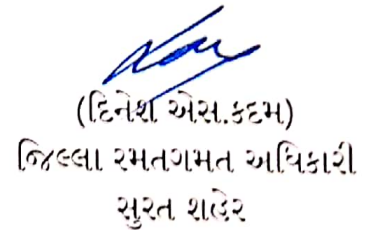 (દિનેશ એસ.કદમ)
જિલ્લા રમતગમત અધિકારી
સુરત શહેર